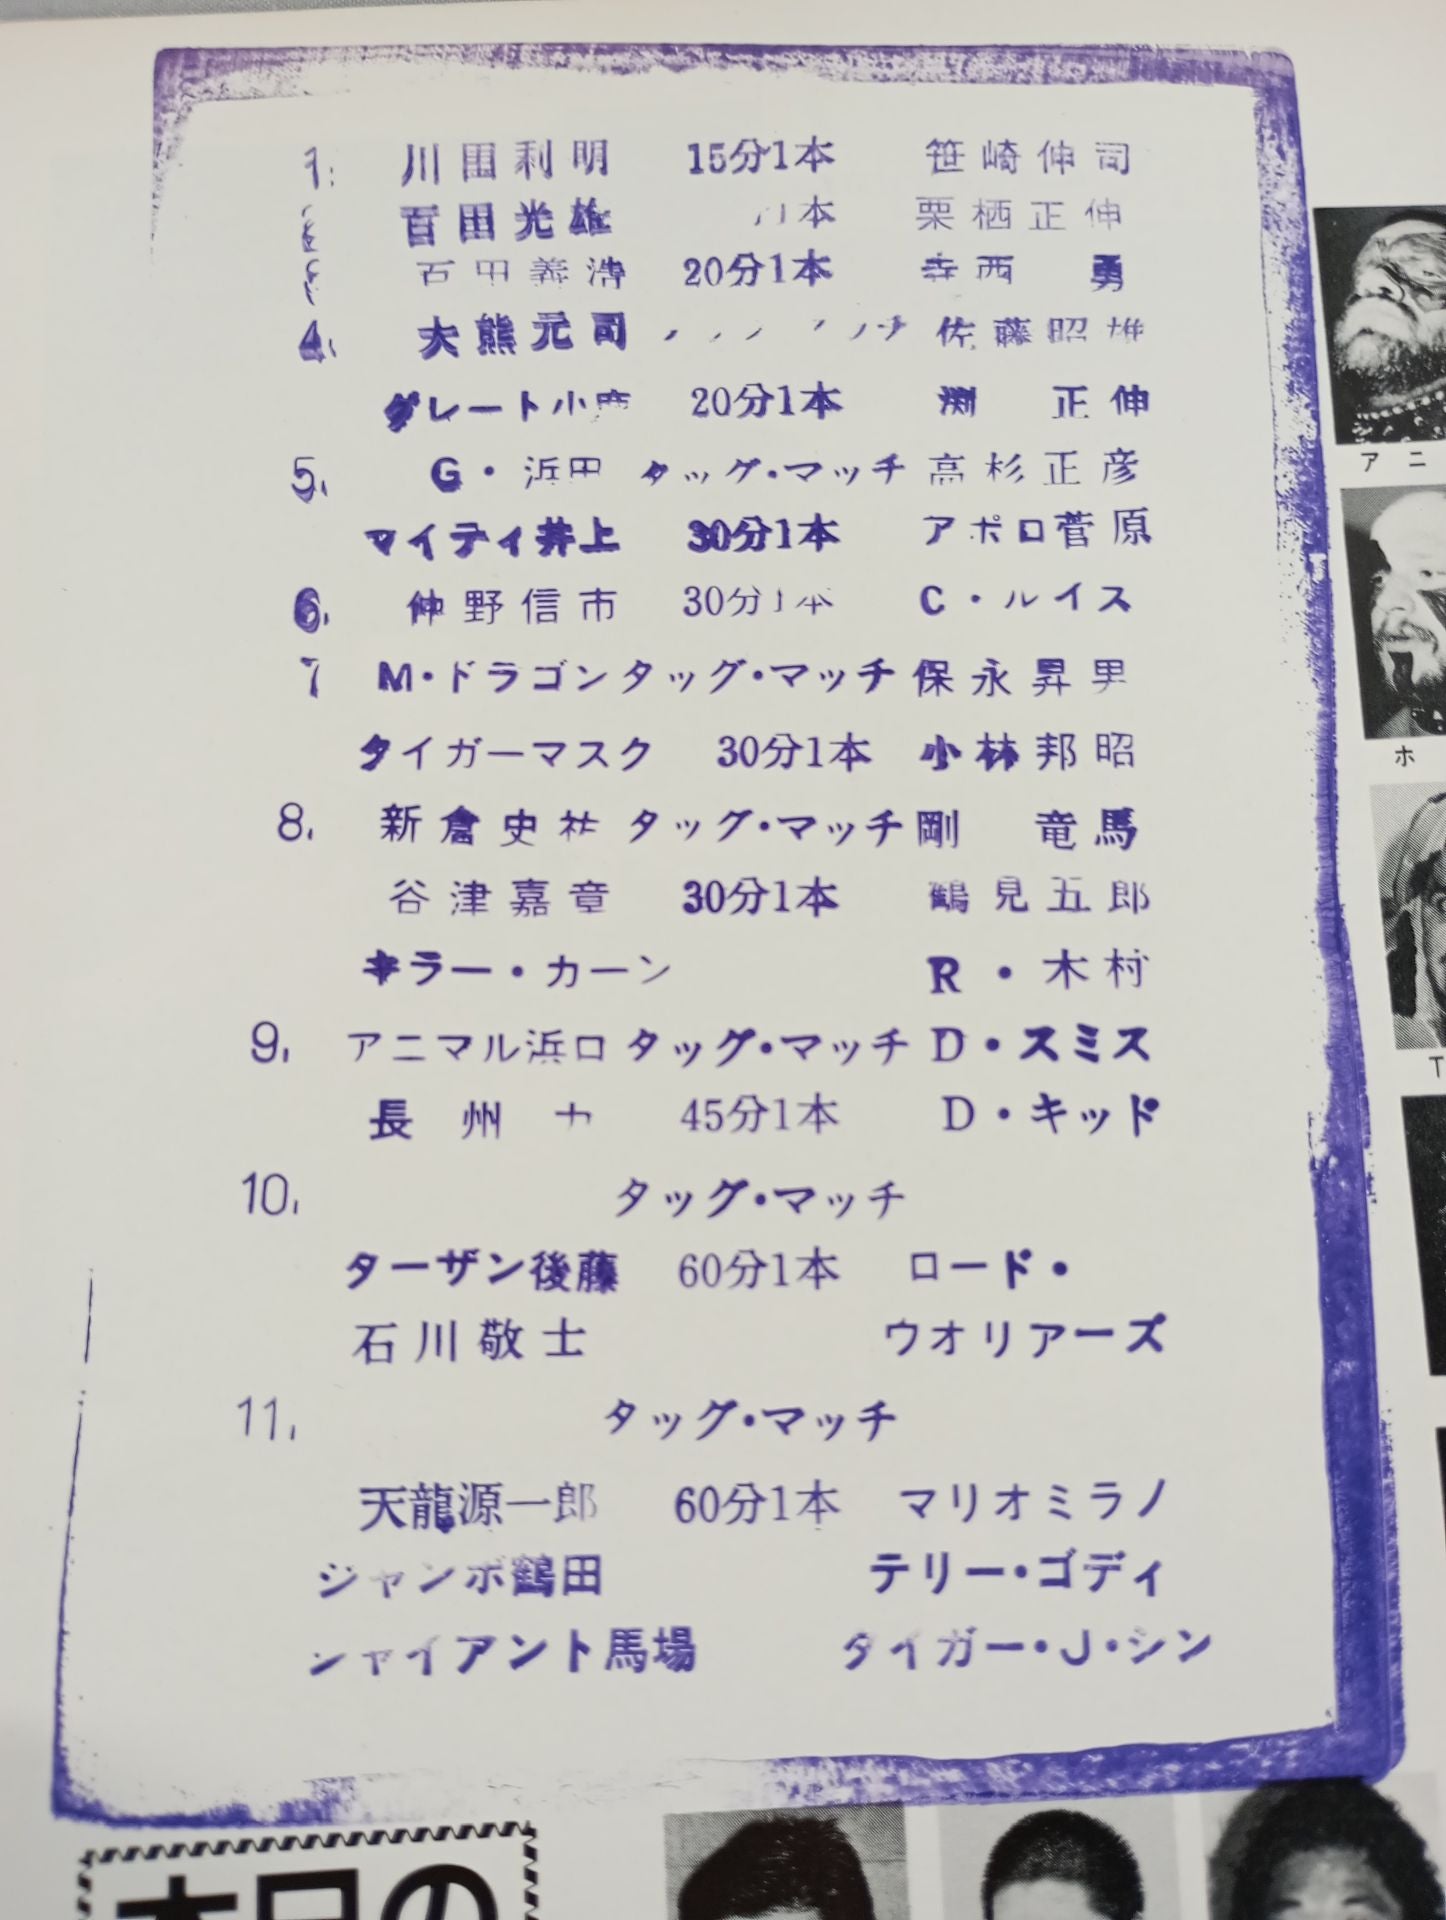 1. 川田利明 15分1本 笹崎伸司
百田光雄 1本 栗栖正伸
石田義浩 20分1本 寺西 勇
4. 大熊元司 佐藤昭雄
グレート小鹿 20分1本 渕 正伸
5. G・浜田 タッグ・マッチ 高杉正彦
マイティ井上 30分1本 アポロ菅原
6. 仲野信市 30分1本 C・ルイス
7 M・ドラゴン タッグ・マッチ 保永昇男
タイガーマスク 30分1本 小林邦昭
8. 新倉史祐 タッグ・マッチ 剛 竜馬
谷津嘉章 30分1本 鶴見五郎
キラー・カーン R・木村
9. アニマル浜口 タッグ・マッチ D・スミス
長州力 45分1本 D・キッド
10. タッグ・マッチ
ターザン後藤 60分1本 ロード・
石川敬士 ウオリアーズ
11. タッグ・マッチ
天龍源一郎 60分1本 マリオミラノ
ジャンボ鶴田 テリー・ゴディ
ジャイアント馬場 タイガー・J・シン
アニ
ホ
T
本日の